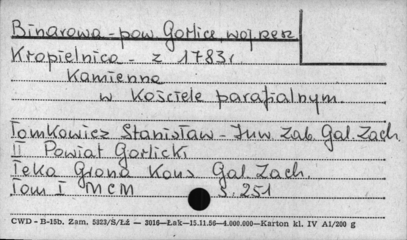 Binarowa - pow. Gorlice, woj. rzesz
Kropielnica - z 1783 r.
Kamienna
w Kościele parafialnym.
Tomkowicz Stanisław - Inw. Zab. Gal. Zach.
II Powiat Gorlicki
Teka Grona Kons. Gal. Zach.
Tom I MCM S. 251
CWD - B-15b. Zam. 5323/S/Łż — 3016—Łak—15.11.56—4.000.000—Karton kl. IV A1/200 g